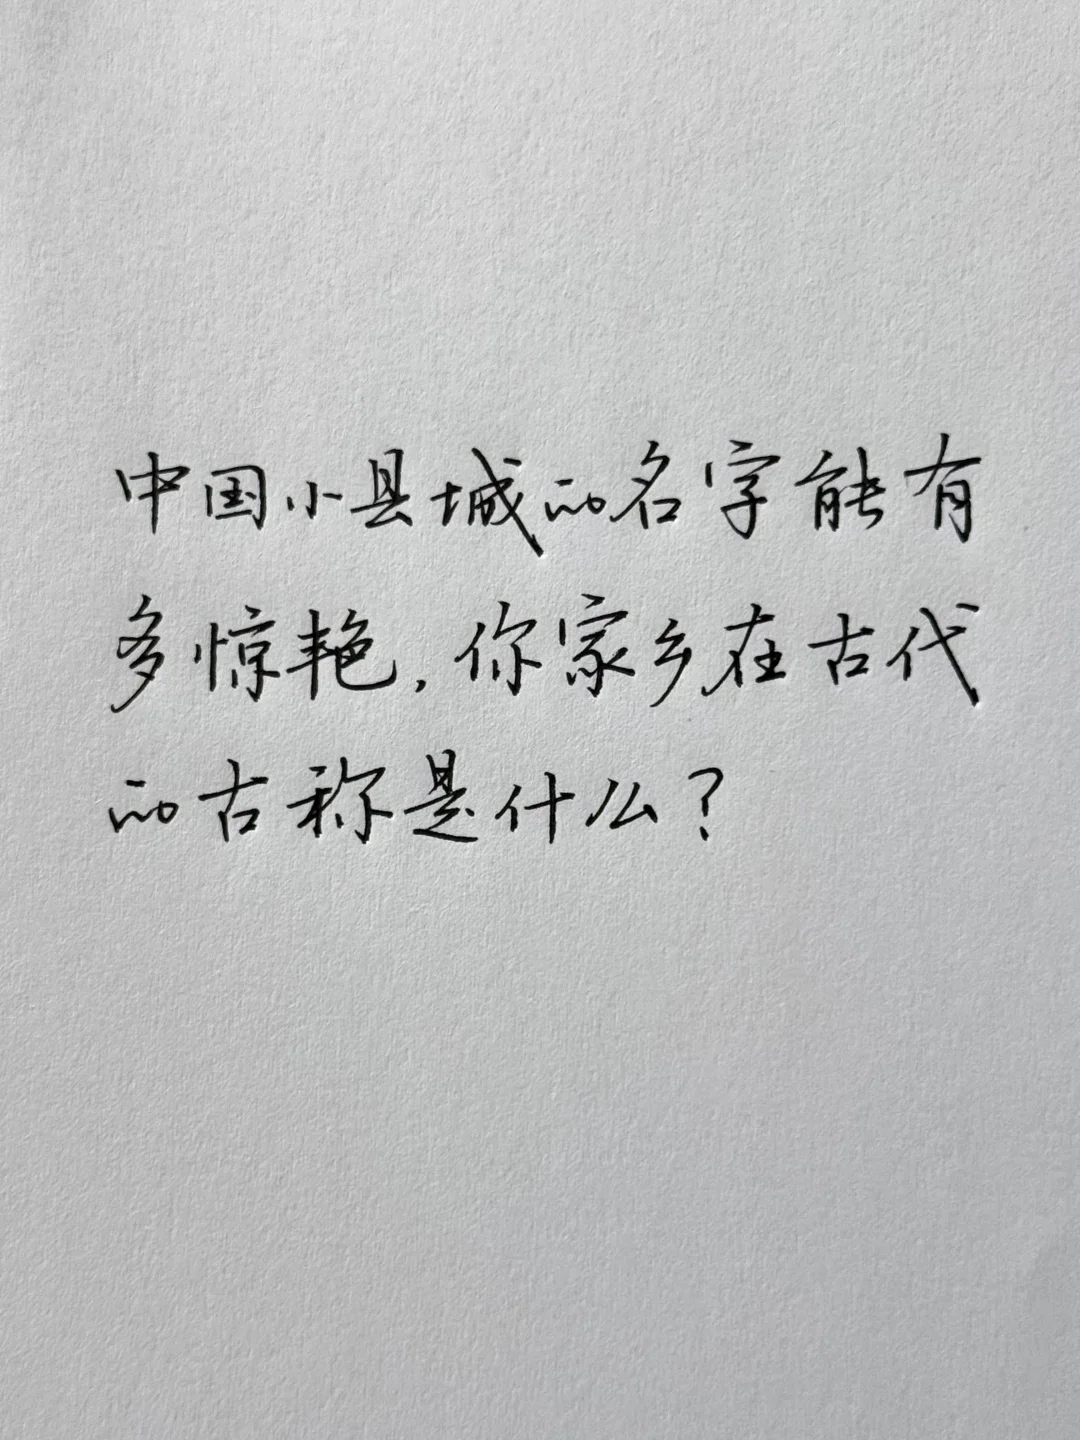 中国小县城的名字能有
多惊艳,你家乡在古代
的古称是什么?